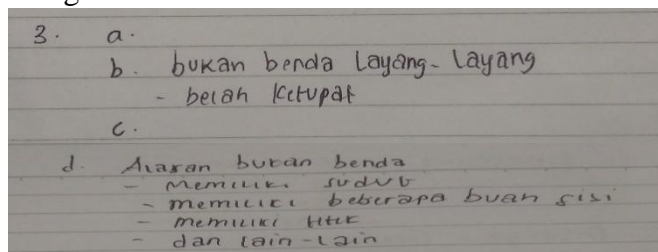 3. a.
b. bukan benda Layang-Layang
- belah Ketupat
c.
d. Alasan bukan benda
- Memiliki sudut
- memiliki beberapa buah sisi
- memiliki titik
- dan lain-lain